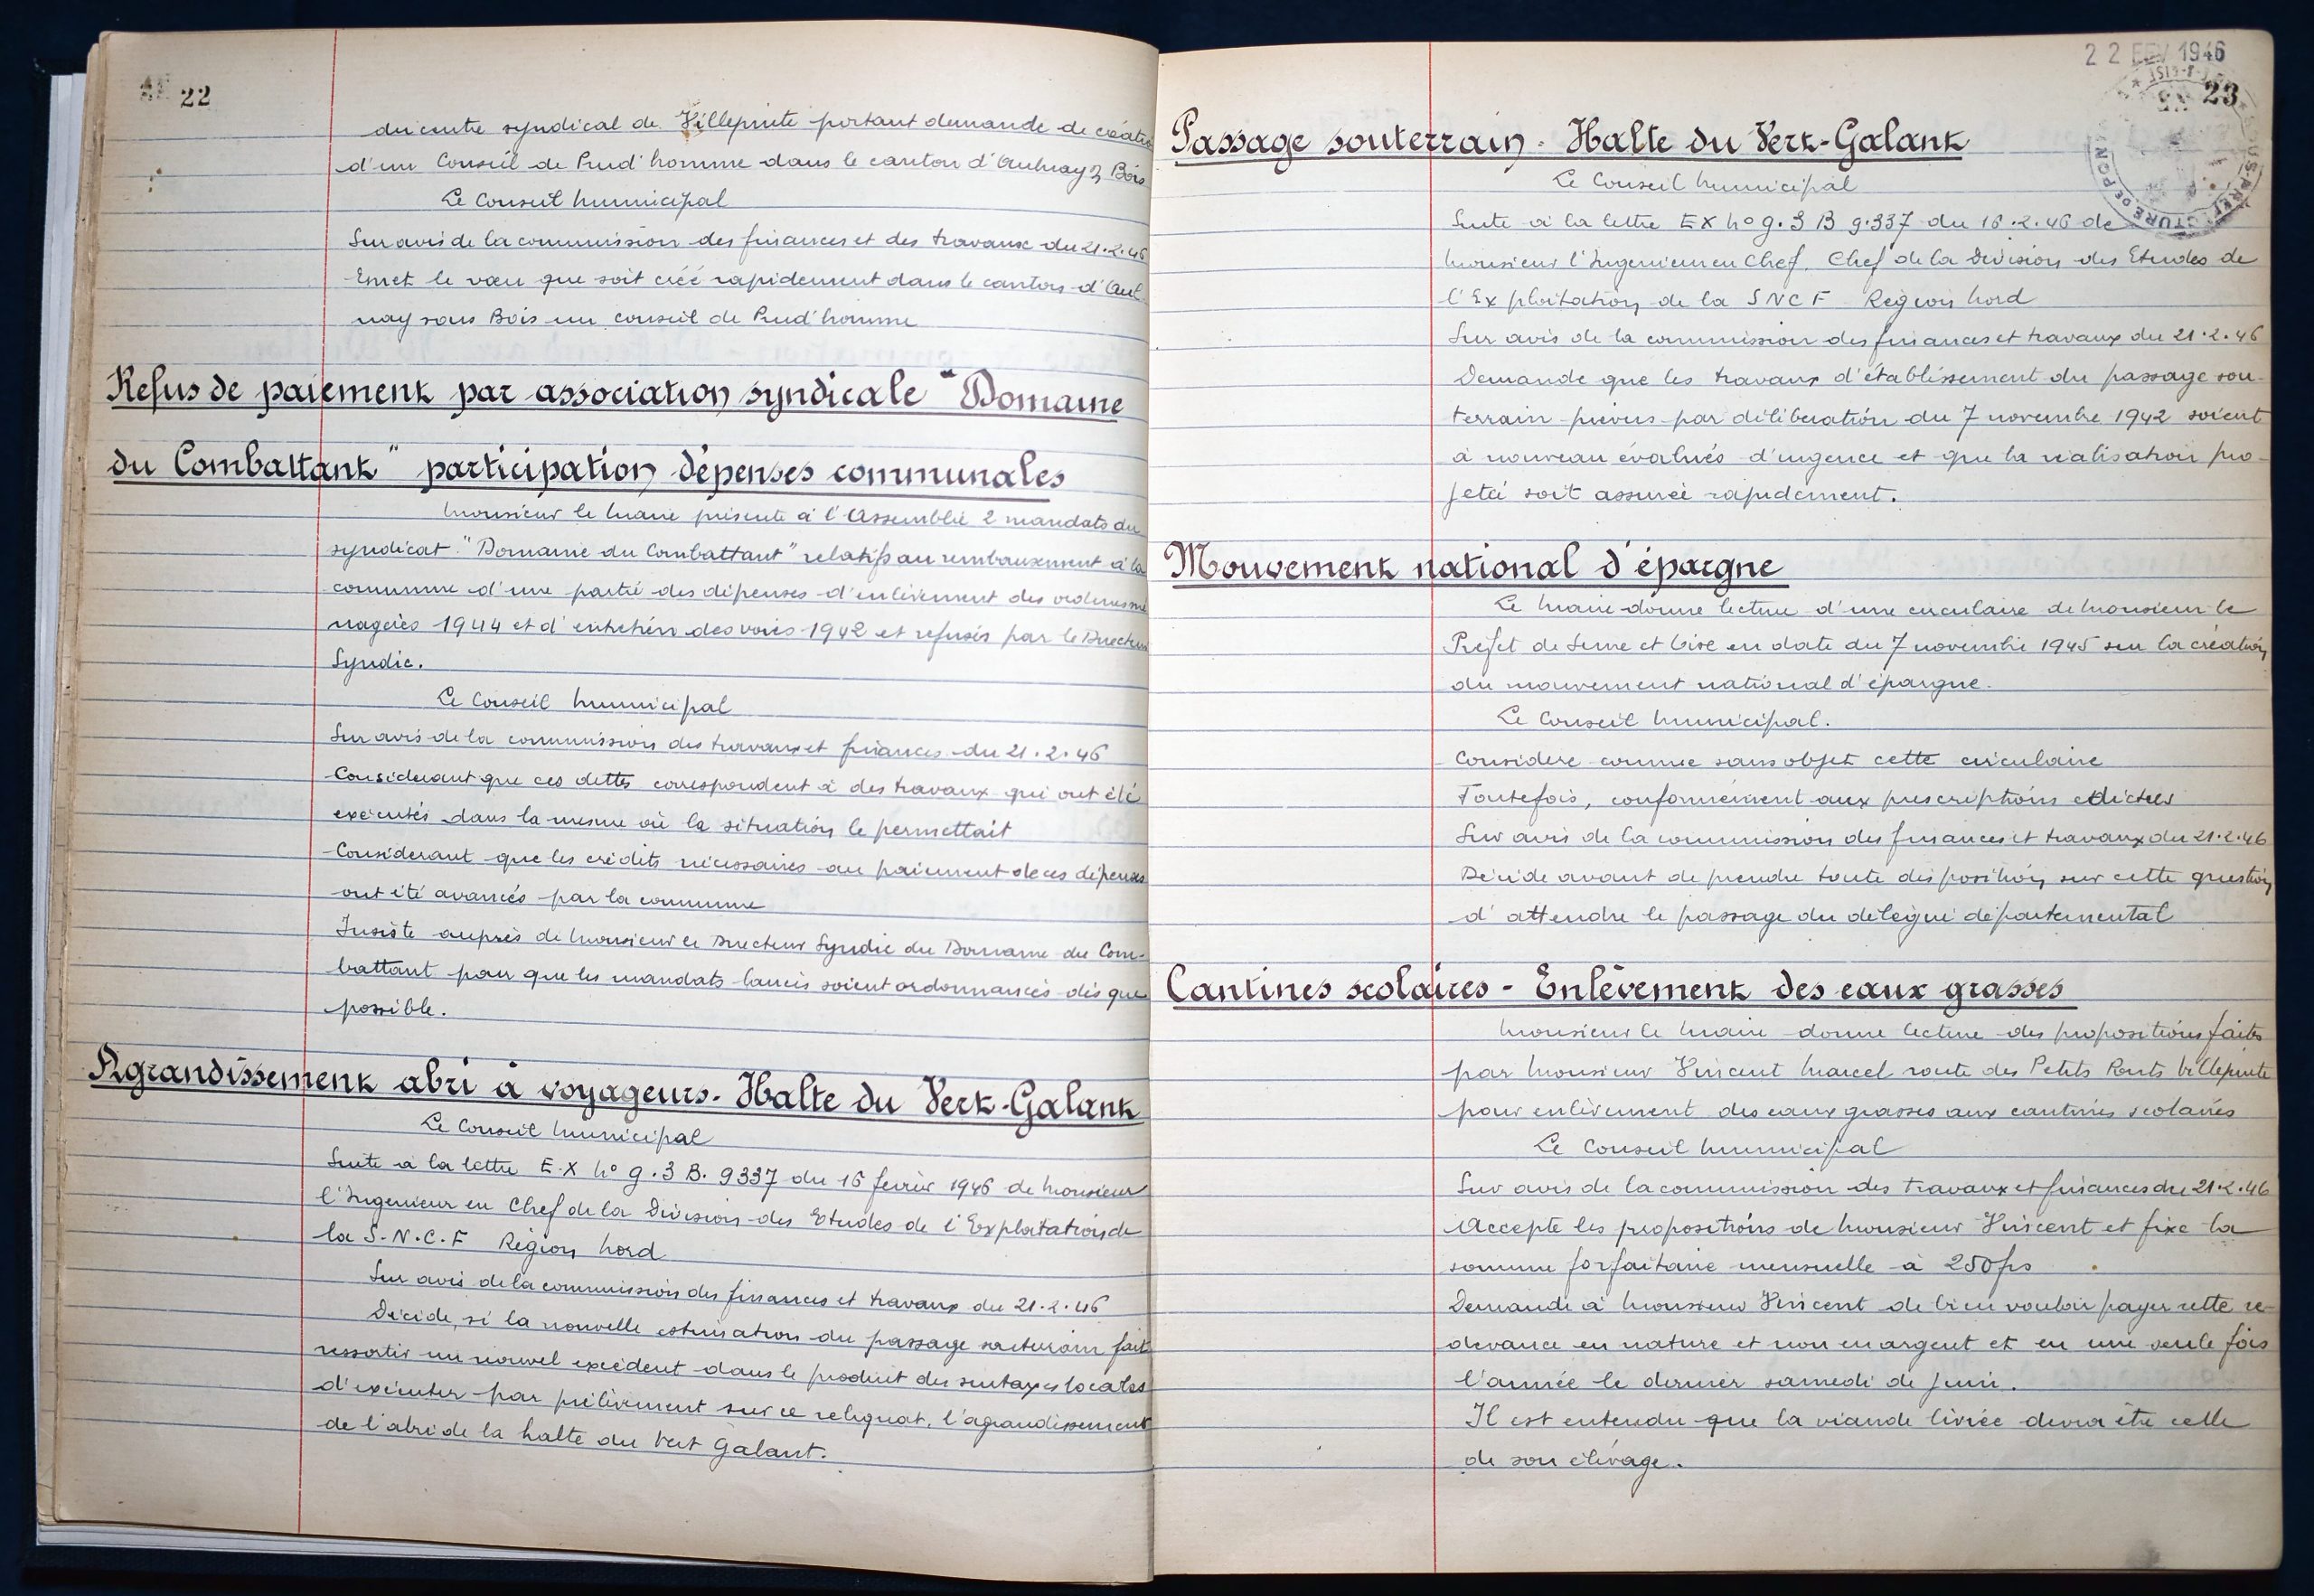 22
du centre syndical de Villepinte portant demande de création
d'un Conseil de Prud'homme dans le canton d'Aulnay s Bois
Le Conseil Municipal
Sur avis de la commission des finances et des travaux du 21.2.46
Emet le vœu que soit créé rapidement dans le canton d'Aul-
nay sous Bois un conseil de Prud'homme
Refus de paiement par association syndicale "Domaine
du Combattant" participation dépenses communales
Monsieur le Maire présente à l'Assemblée 2 mandats du
syndicat "Domaine du Combattant" relatifs au remboursement à la
commune d'une partie des dépenses d'enlèvement des ordures mé
nagères 1944 et d'entretien des voies 1942 et refusés par le Directeur
Syndic.
Le Conseil Municipal
Sur avis de la commission des travaux et finances du 21.2.46
Considerant que ces dettes correspondent à des travaux qui ont été
exécutés dans la mesure où la situation le permettait
Considerant que les crédits nécessaires au paiement de ces dépenses
ont été avancés par la commune
Insiste auprès de Monsieur le Directeur Syndic du Domaine du Com-
battant pour que les mandats lancés soient ordonnancés dès que
possible.
Agrandissement abri à voyageurs. Halte du Vert-Galant
Le Conseil Municipal
Suite à la lettre E.X N° 9.3 B. 9337 du 16 février 1946 de Monsieur
l'Ingenieur en Chef de la Division des Etudes de l'Exploitation de
la S.N.C.F Région Nord
Sur avis de la commission des finances et travaux du 21.2.46
Décide, si la nouvelle estimation du passage souterrain fait
ressortir un nouvel excédent dans le produit des surtaxes locales
d'exécuter par prélèvement sur ce reliquat, l'agrandissement
de l'abri de la halte du Vert Galant.
22 FEV 1946
23
Passage souterrain. Halte du Vert-Galant
Le Conseil Municipal
Suite à la lettre EX N° 9.3 B 9.337 du 16.2.46 de
Monsieur l'Ingenieur en Chef, Chef de la Division des Etudes de
l'Exploitation de la SNCF Région Nord
Sur avis de la commission des finances et travaux du 21.2.46
Demande que les travaux d'établissement du passage sou-
terrain prévus par délibération du 7 novembre 1942 soient
à nouveau évalués d'urgence et que la réalisation pro-
jetée soit assurée rapidement.
Mouvement national d'épargne
Le Maire donne lecture d'une circulaire de Monsieur le
Préfet de Seine et Oise en date du 7 novembre 1945 sur la création
du mouvement national d'épargne.
Le Conseil Municipal.
Considere comme sans objet cette circulaire
Toutefois, conformément aux prescriptions édictées
Sur avis de la commission des finances et travaux du 21.2.46
Décide avant de prendre toute disposition sur cette question
d'attendre le passage du délégué départemental
Cantines scolaires - Enlèvement des eaux grasses
Monsieur le Maire donne lecture des propositions faites
par Monsieur Vincent Marcel route des Petits Ponts Villepinte
pour enlèvement des eaux grasses aux cantines scolaires
Le Conseil Municipal
Sur avis de la commission des travaux et finances du 21.2.46
Accepte les propositions de Monsieur Vincent et fixe la
somme forfaitaire mensuelle à 250 frs
Demande à Monsieur Vincent de bien vouloir payer cette re-
devance en nature et non en argent et en une seule fois
l'année le dernier samedi de juin.
Il est entendu que la viande livrée devra être celle
de son élevage.